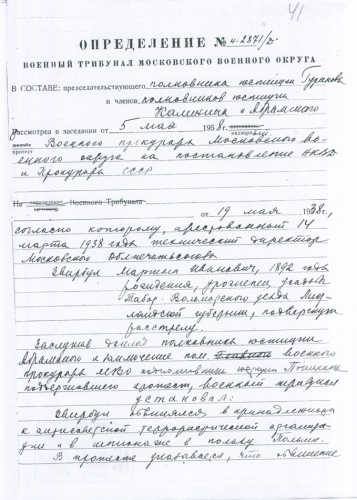 41
ОПРЕДЕЛЕНИЕ № н-2871/58
ВОЕННЫЙ ТРИБУНАЛ МОСКОВСКОГО ВОЕННОГО ОКРУГА
В СОСТАВЕ: председательствующего полковника юстиции Гуринова
и членов полковников юстиции
Калинина и Абрамского
Рассмотрел в заседании от 5 мая 1958 г.
протест Военного прокурора Московского во-
енного округа на постановление НКВД
и Прокурора СССР
На Военного Трибунала
от 19 мая 1938 г.,
согласно которому, арестованный 14
марта 1938 года технический директор
Московского
Мартын Иванович, 1892 года
рождения, уроженец усадьбы
Табор- уезда
губернии, подвергнут
расстрелу.
Заслушав доклад полковника юстиции
Абрамского и заключение пом. военного
прокурора МВО подполковника юстиции
поддержавшего протест, военный трибунал
установил:
обвинялся в принадлежности
к антисоветской террористической организа-
ции и в шпионаже в пользу Польши.
В протесте указывается, что обвинение